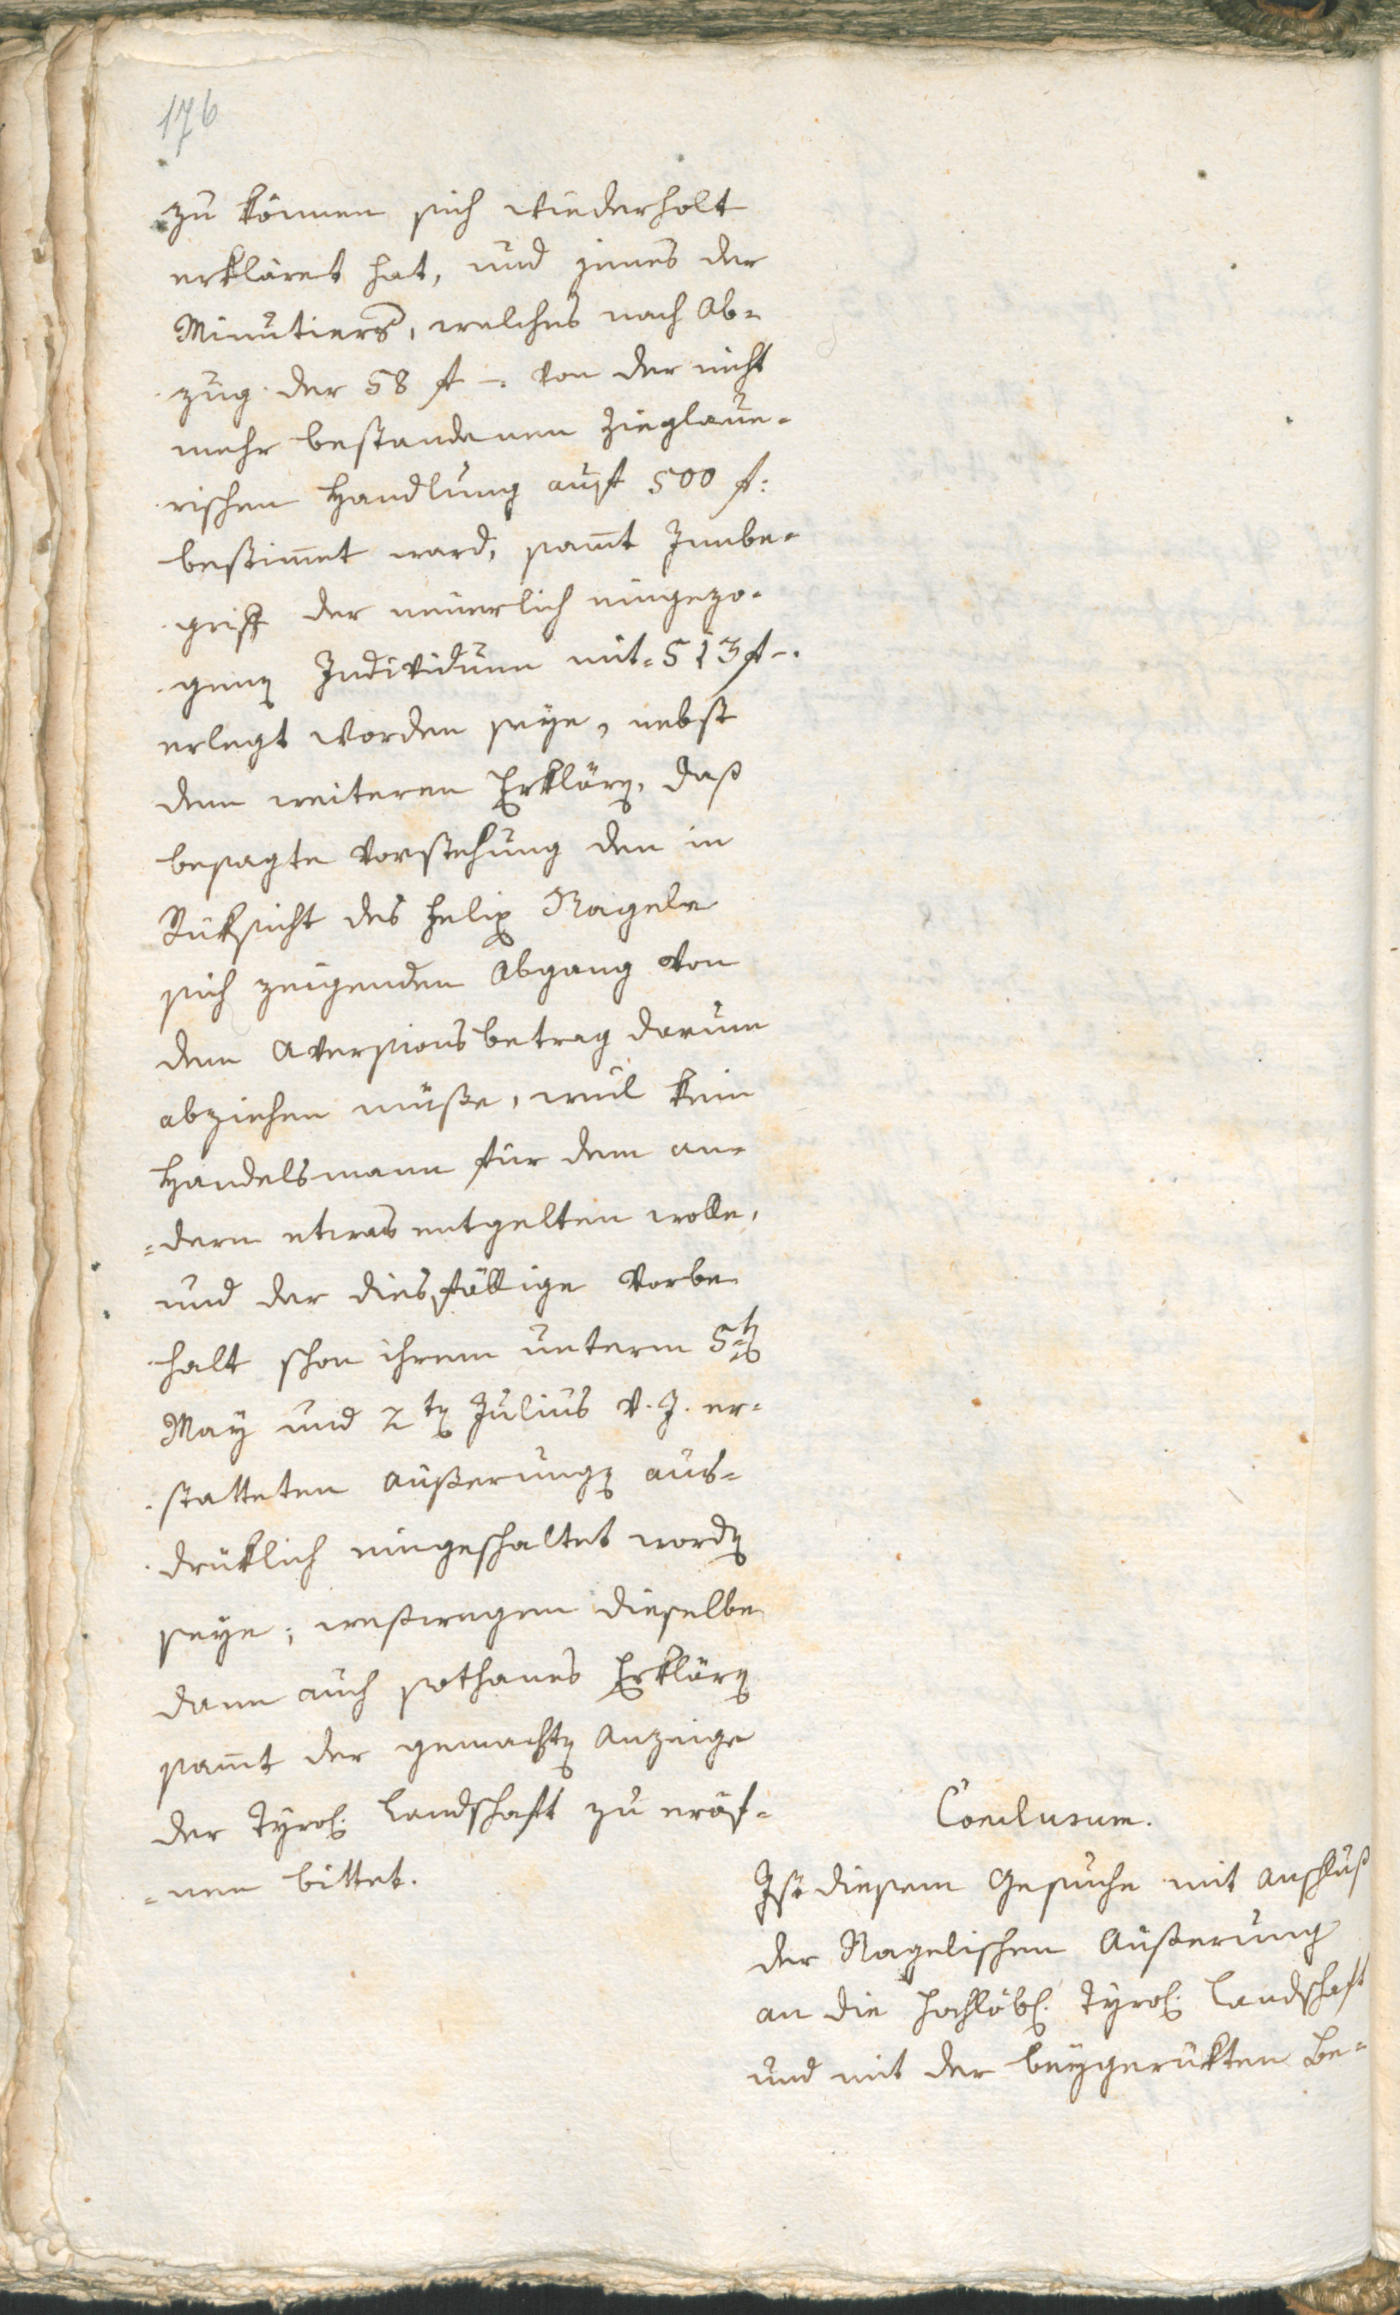 176
zu können sich wiederholt
erkläret hat, und jenes der
Minutiers, welches nach Ab=
zug der 58 f –. von der nicht
mehr bestandenen Zieglaue=
rischen Handlung auf 500 f:
bestim̄et ward, sam̄t Innbe=
griff der neüerlich eingezo=
genen Individuen mit= 513 f –.
erlegt worden seÿe, nebst
dem weiteren Erklären, daß
besagte Vorstehung den in
Rüksicht des Felix Nagele
sich zeigenden Abgang von
dem Aversionsbetrag darum
abziehen müße, weil kein
Handelsmann für dem an=
=dern etwas entgelten wolle,
und der diesfällige Vorbe
halt schon ihrem unterm 5ten
Maÿ und 2ten Julius v. J. er=
statteten Äußerungen aus=
drüklich eingeschaltet worden
seÿe; weßwegen dieselbe
dann auch sothanes Erklären
sam̄t der gemachten Anzeige
der Tyrol. Landschaft zu eröf=
=nen bittet.
Conclusum.
Ist diesem Gesuche mit Anschluß
der Nagelischen Äußerung
an die Hochlöbl. Tyrol. Landschaft
und mit der beÿgerükten Be=